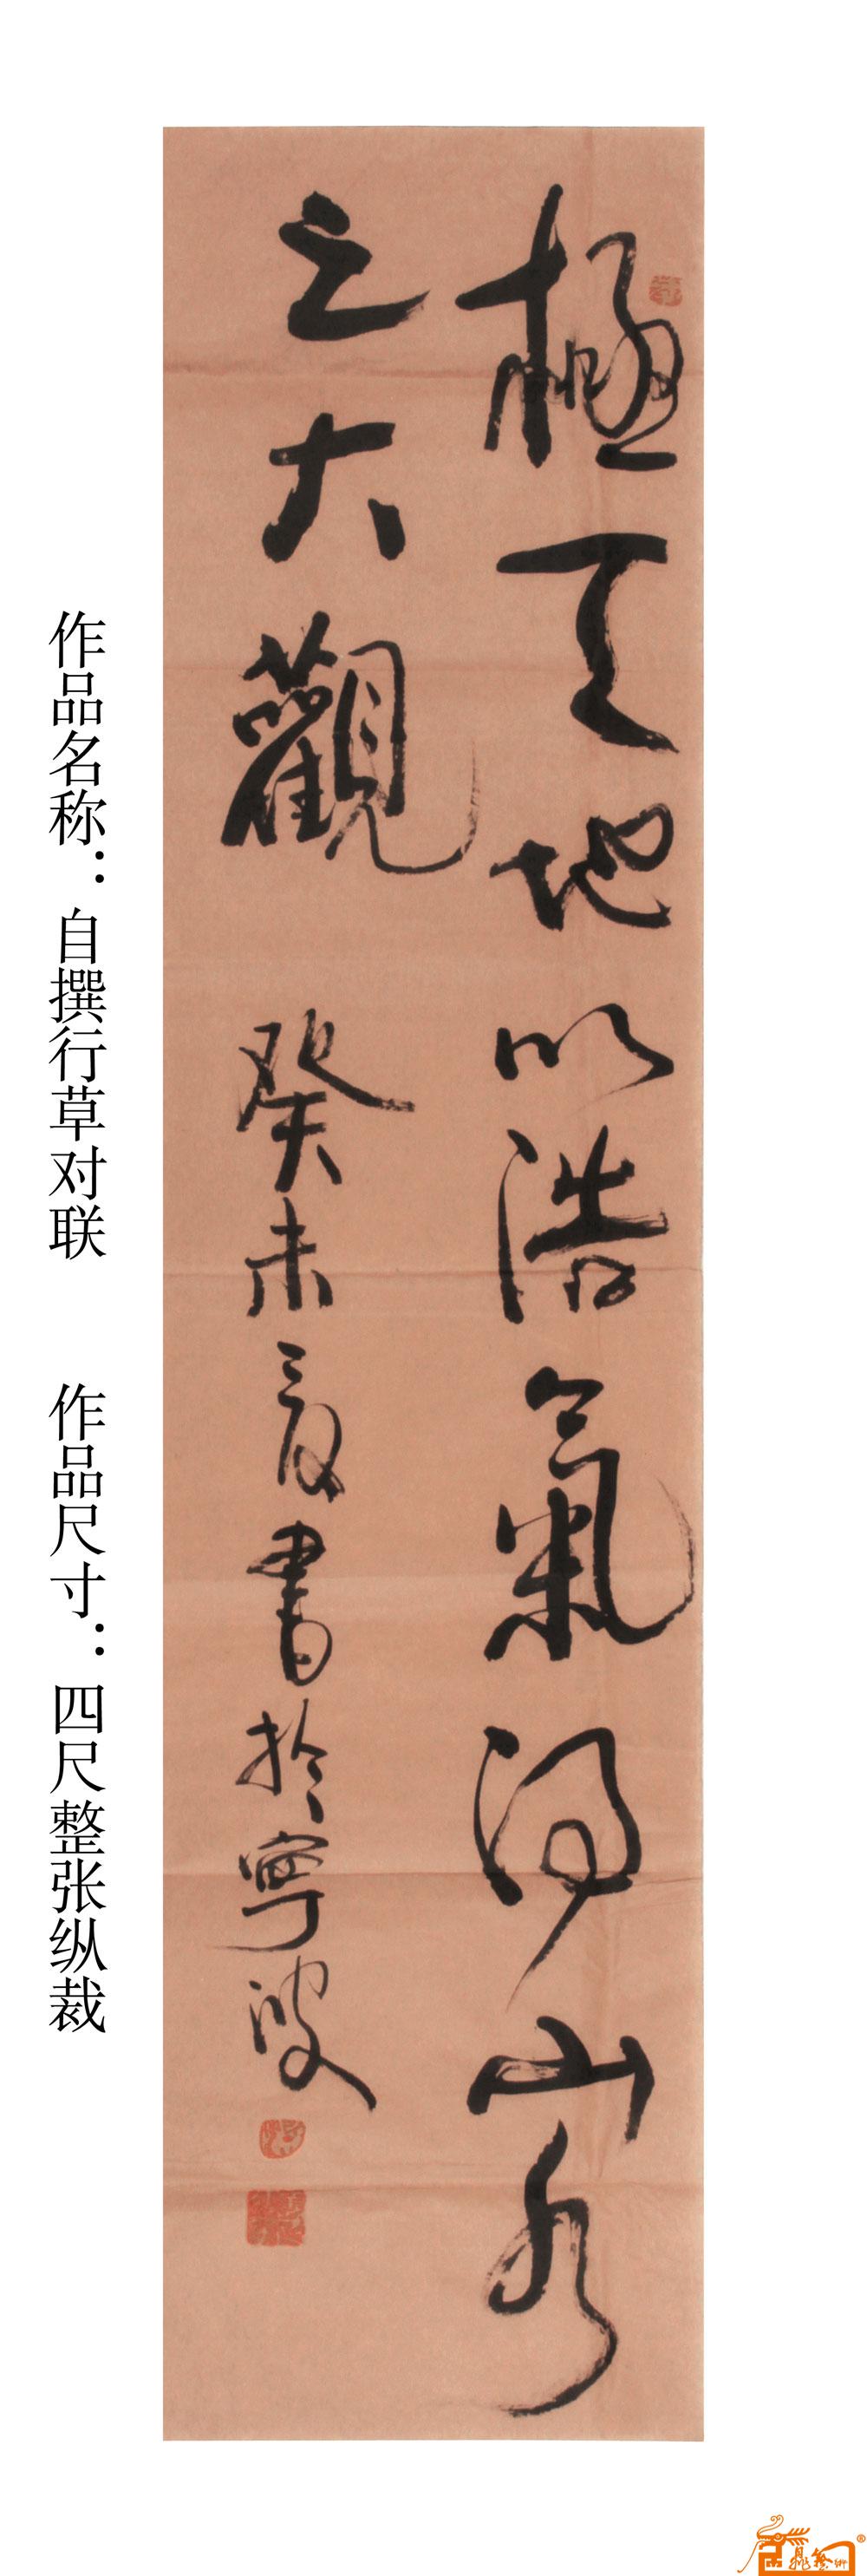 極天地以浩氣得山水
之大觀 癸未夏書於寧波
作品名称：自撰行草对联 作品尺寸：四尺整张纵裁